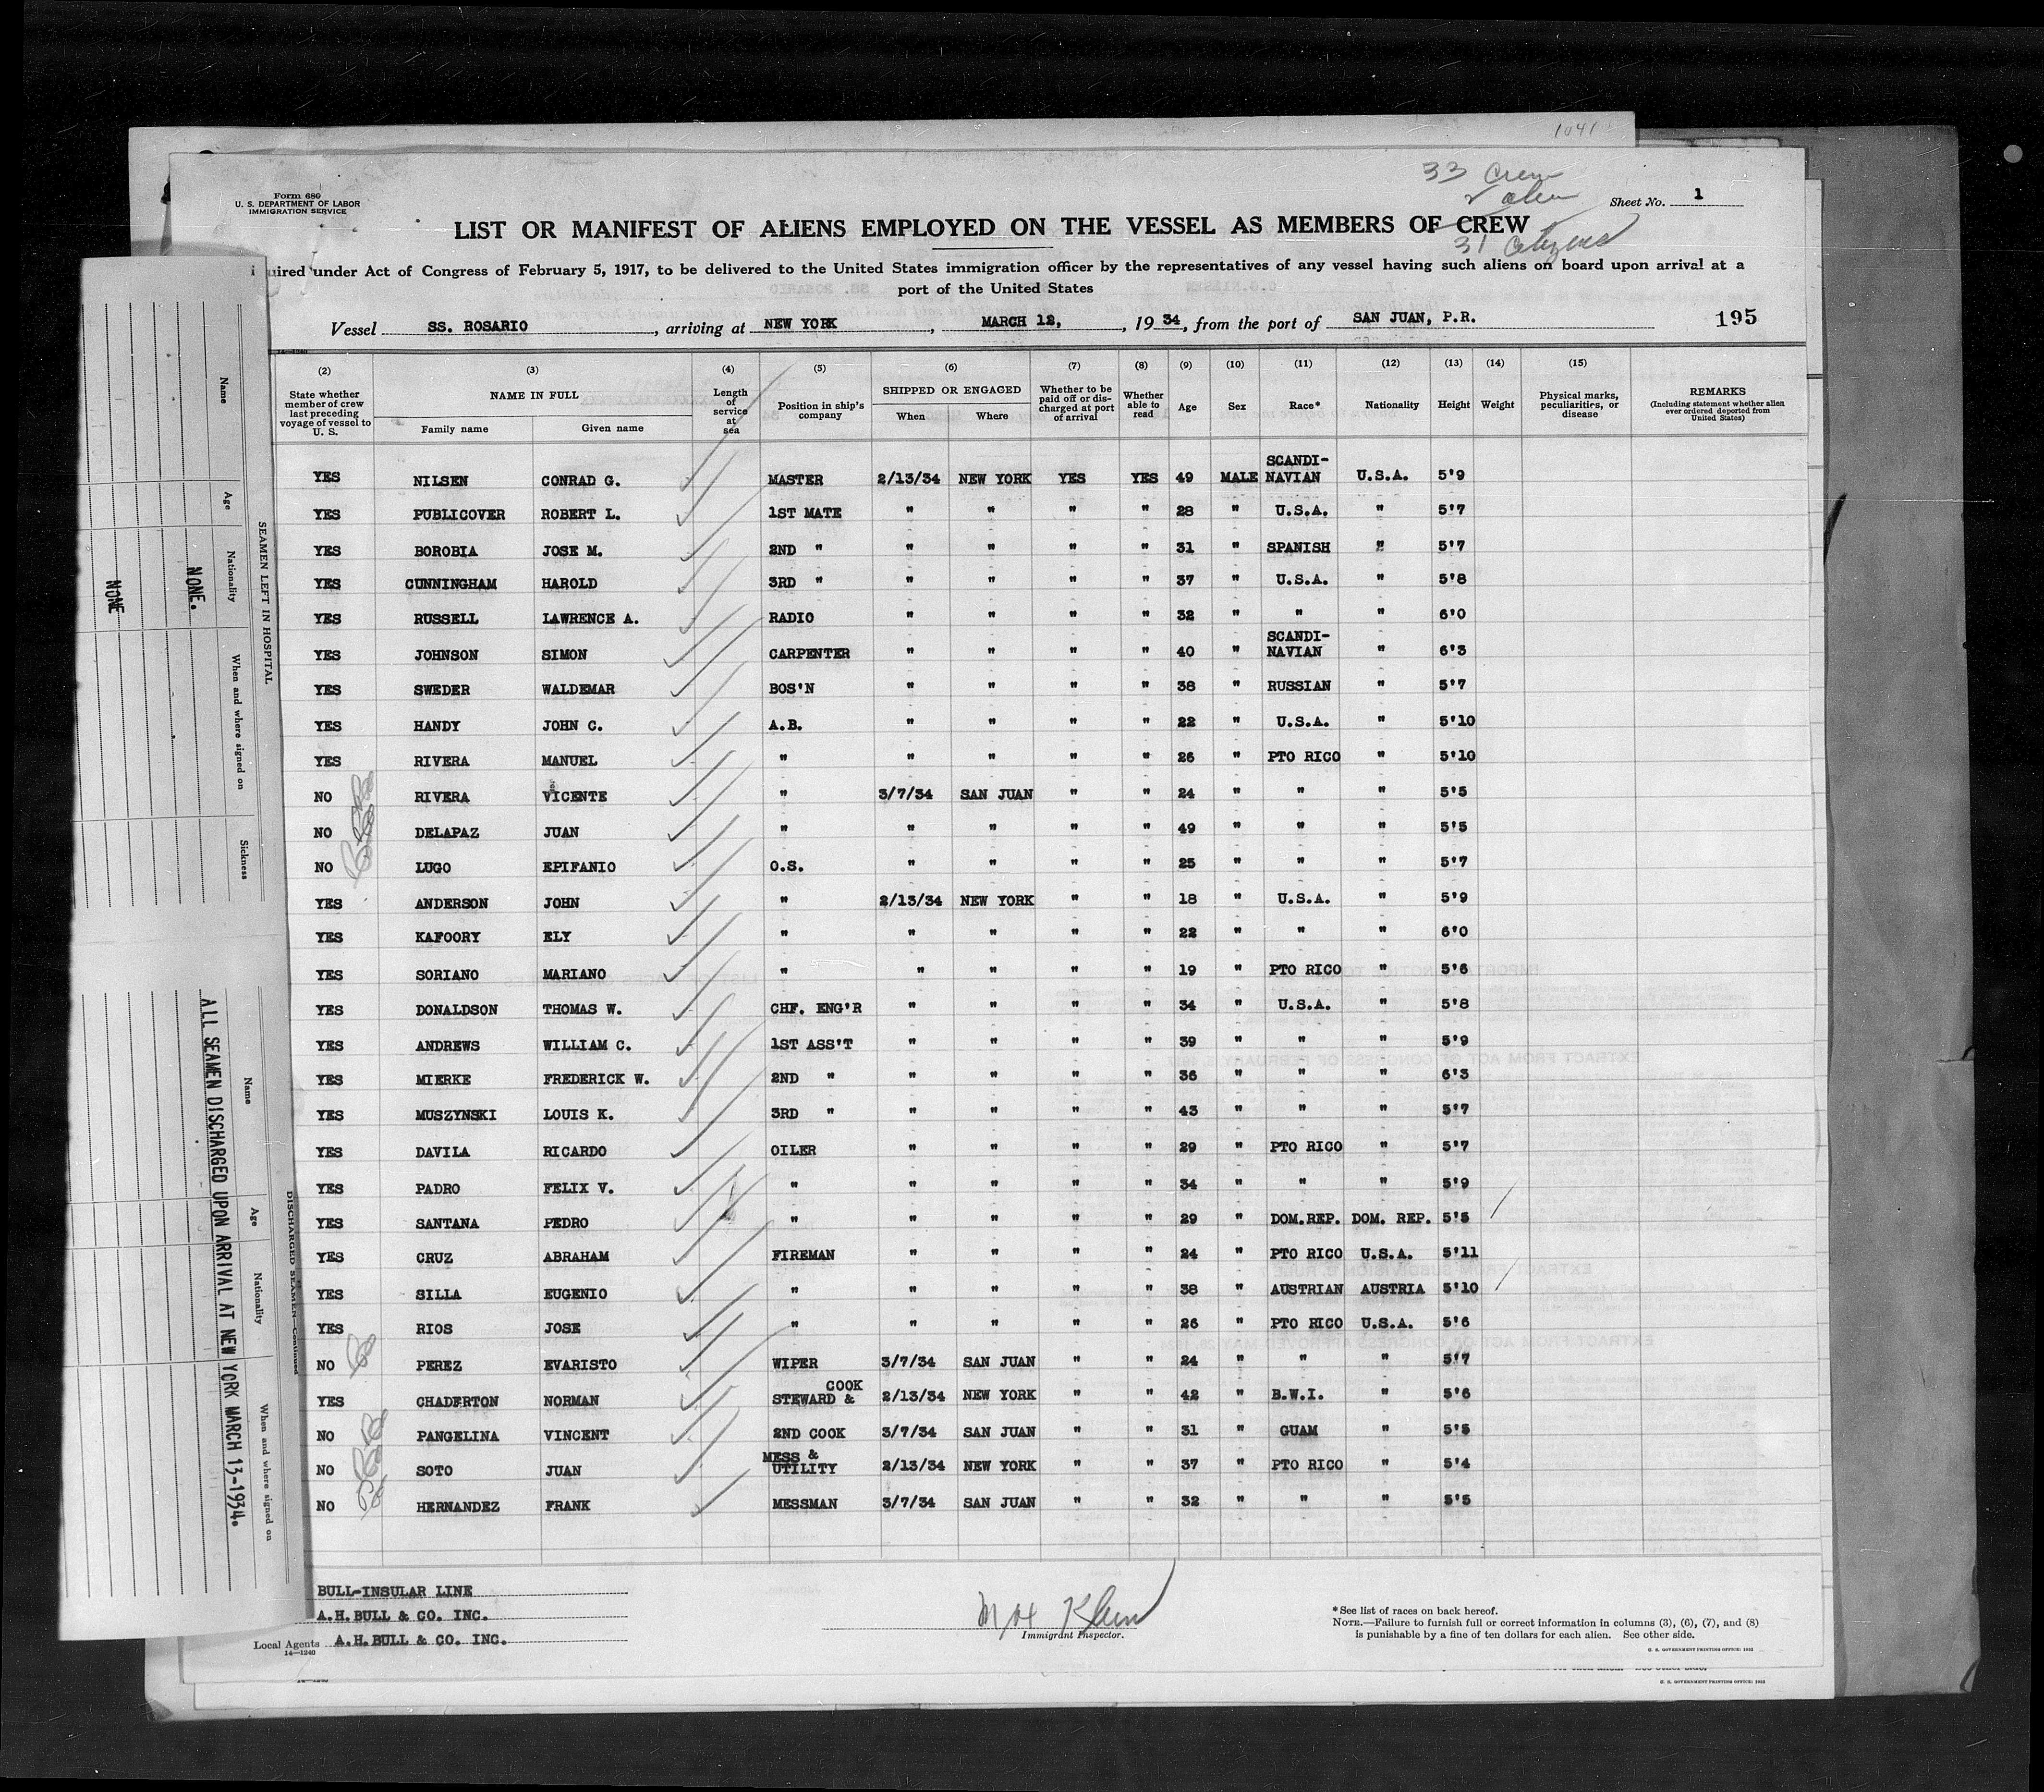 1041
33 Crew
2 alien
31 Citizens
Form 680
U. S. DEPARTMENT OF LABOR
IMMIGRATION SERVICE
Sheet No. 1
LIST OR MANIFEST OF ALIENS EMPLOYED ON THE VESSEL AS MEMBERS OF CREW
uired under Act of Congress of February 5, 1917, to be delivered to the United States immigration officer by the representatives of any vessel having such aliens on board upon arrival at a
port of the United States
Vessel SS. ROSARIO, arriving at NEW YORK, MARCH 12, , 1934, from the port of SAN JUAN, P.R. 195
14—1240
(2) (3) (4) (5) (6) (7) (8) (9) (10) (11) (12) (13) (14) (15)
State whether member of crew last preceding voyage of vessel to U. S. NAME IN FULL Family name Given name Length of service at sea Position in ship's company SHIPPED OR ENGAGED When Where Whether to be paid off or discharged at port of arrival Whether able to read Age Sex Race* Nationality Height Weight Physical marks, peculiarities, or disease REMARKS (Including statement whether alien ever ordered deported from United States)
YES NILSEN CONRAD G. MASTER 2/13/34 NEW YORK YES YES 49 MALE SCANDI-NAVIAN U.S.A. 5'9
YES PUBLICOVER ROBERT L. 1ST MATE " " " " 28 " U.S.A. " 5'7
YES BOROBIA JOSE M. 2ND " " " " " 31 " SPANISH " 5'7
YES CUNNINGHAM HAROLD 3RD " " " " " 37 " U.S.A. " 5'8
YES RUSSELL LAWRENCE A. RADIO " " " " 32 " " " 6'0
YES JOHNSON SIMON CARPENTER " " " " 40 " SCANDI-NAVIAN " 6'3
YES SWEDER WALDEMAR BOS'N " " " " 38 " RUSSIAN " 5'7
YES HANDY JOHN C. A.B. " " " " 22 " U.S.A. " 5'10
YES RIVERA MANUEL " " " " " 26 " PTO RICO " 5'10
NO RIVERA VICENTE " 3/7/34 SAN JUAN " " 24 " " " 5'5
NO DELAPAZ JUAN " " " " " 49 " " " 5'5
NO LUGO EPIFANIO O.S. " " " " 25 " " " 5'7
YES ANDERSON JOHN " 2/13/34 NEW YORK " " 18 " U.S.A. " 5'9
YES KAFOORY ELY " " " " " 22 " " " 6'0
YES SORIANO MARIANO " " " " " 19 " PTO RICO " 5'6
YES DONALDSON THOMAS W. CHF. ENG'R " " " " 34 " U.S.A. " 5'8
YES ANDREWS WILLIAM C. 1ST ASS'T " " " " 39 " " " 5'9
YES MIERKE FREDERICK W. 2ND " " " " " 36 " " " 6'3
YES MUSZYNSKI LOUIS K. 3RD " " " " " 43 " " " 5'7
YES DAVILA RICARDO OILER " " " " 29 " PTO RICO " 5'7
YES PADRO FELIX V. " " " " " 34 " " " 5'9
YES SANTANA PEDRO " " " " " 29 " DOM.REP. DOM. REP. 5'5
YES CRUZ ABRAHAM FIREMAN " " " " 24 " PTO RICO U.S.A. 5'11
YES SILLA EUGENIO " " " " " 38 " AUSTRIAN AUSTRIA 5'10
YES RIOS JOSE " " " " " 26 " PTO RICO U.S.A. 5'6
NO PEREZ EVARISTO WIPER 3/7/34 SAN JUAN " " 24 " " " 5'7
YES CHADERTON NORMAN STEWARD & COOK 2/13/34 NEW YORK " " 42 " B.W.I. " 5'6
NO PANGELINA VINCENT 2ND COOK 3/7/34 SAN JUAN " " 31 " GUAM " 5'5
NO SOTO JUAN MESS & UTILITY 2/13/34 NEW YORK " " 37 " PTO RICO " 5'4
NO HERNANDEZ FRANK MESSMAN 3/7/34 SAN JUAN " " 32 " " " 5'5
BULL-INSULAR LINE
A.H. BULL & CO. INC.
Local Agents A.H. BULL & CO. INC.
14—1240
Max Klein
Immigrant Inspector.
*See list of races on back hereof.
NOTE.—Failure to furnish full or correct information in columns (3), (6), (7), and (8)
is punishable by a fine of ten dollars for each alien. See other side.
U. S. GOVERNMENT PRINTING OFFICE: 1933
U. S. GOVERNMENT PRINTING OFFICE: 1933
SEAMEN LEFT IN HOSPITAL
Name Age Nationality When and where signed on Sickness
NONE.
NONE
DISCHARGED SEAMEN—Continued
Name Age Nationality When and where signed on
ALL SEAMEN DISCHARGED UPON ARRIVAL AT NEW YORK MARCH 13-1934.